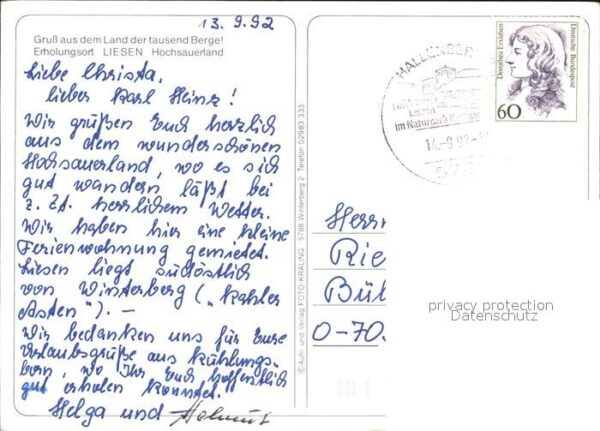 13.9.92
Gruß aus dem Land der tausend Berge!
Erholungsort LIESEN Hochsauerland
Liebe Christa,
lieber Karl Heinz!
Wir grüßen Euch herzlich
aus dem wunderschönen
Hochsauerland, wo es sich
gut wandern läßt bei
z. Zt. herrlichem Wetter.
Wir haben hier eine kleine
Ferienwohnung gemietet.
Liesen liegt südöstlich
von Winterberg („Kahler
Asten"). –
Wir bedanken uns für Eure
Urlaubsgrüße aus Kühlungs-
born, wo Ihr Euch hoffentlich
gut erholen konntet.
Helga und Helmut
© Aufn. und Verlag FOTO-KRÄLING 5788 Winterberg 2 Telefon 02983 333
HALLENBERG
im Naturpark
14.-9.92-
Dorothea Erxleben
Deutsche Bundespost
60
Herrn
Rie
Bü
O-70.
privacy protection
Datenschutz